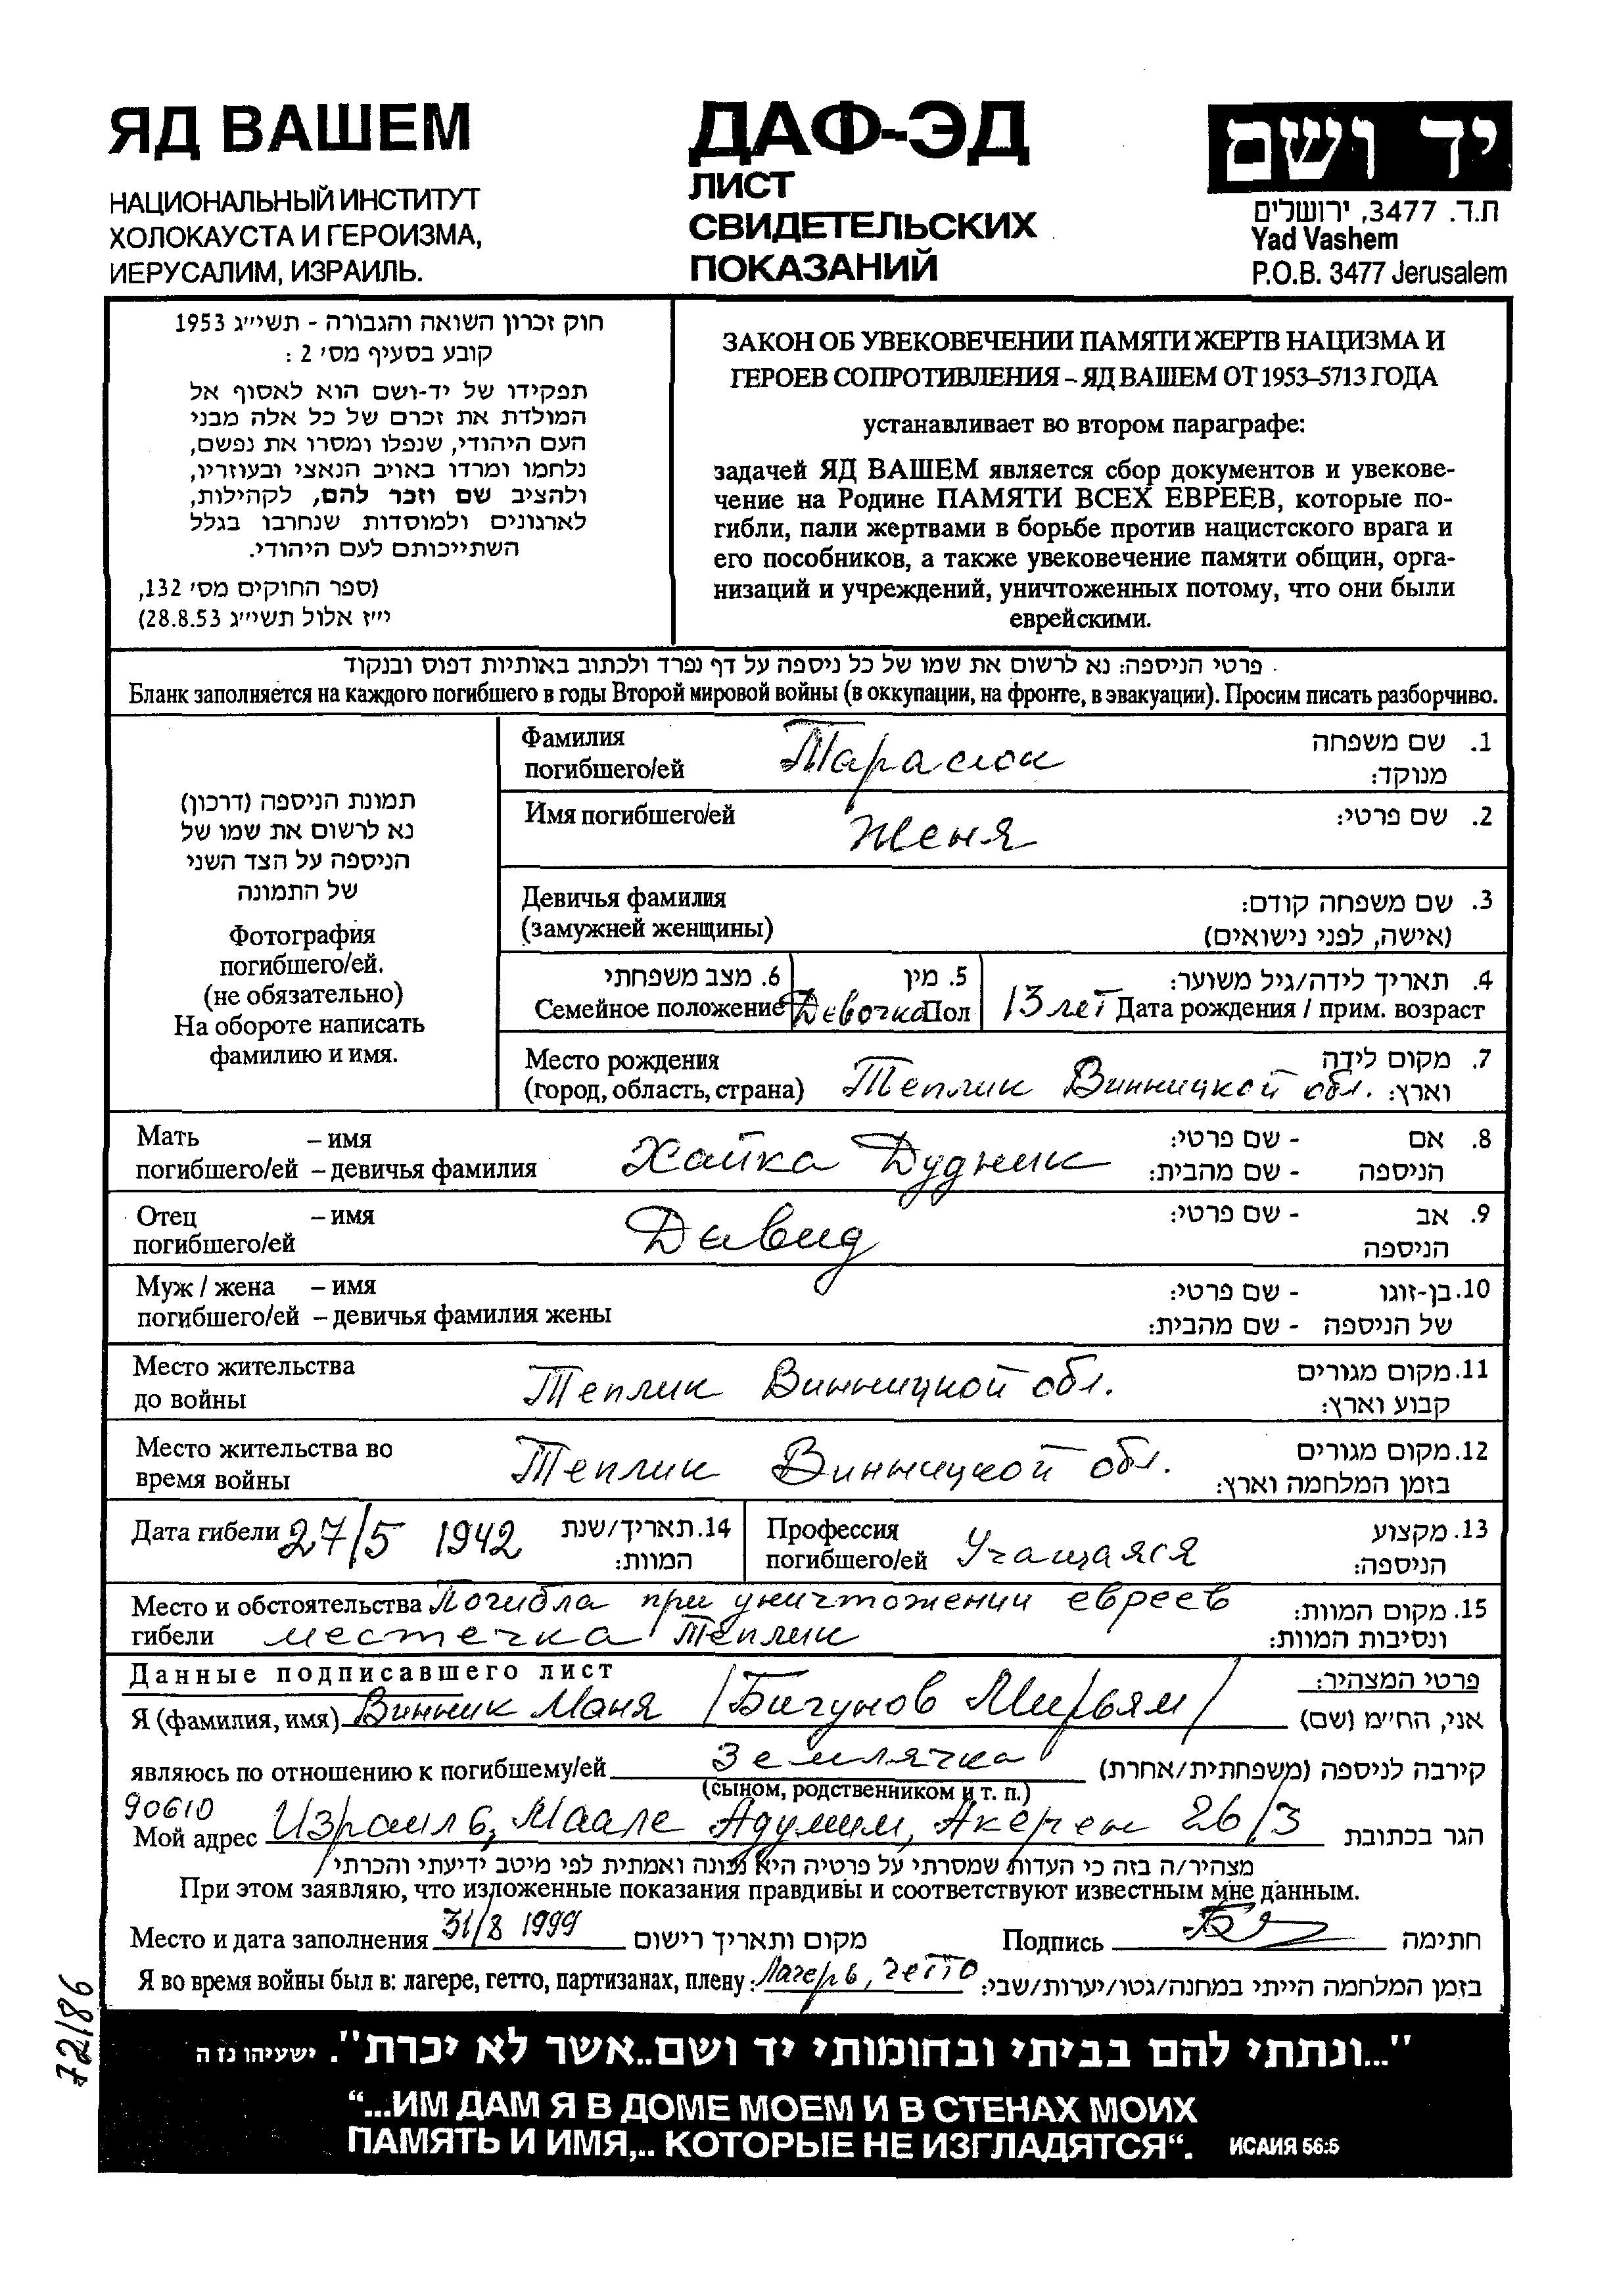 ЯД ВАШЕМ
НАЦИОНАЛЬНЫЙ ИНСТИТУТ
ХОЛОКАУСТА И ГЕРОИЗМА,
ИЕРУСАЛИМ, ИЗРАИЛЬ.
ДАФ-ЭД
ЛИСТ
СВИДЕТЕЛЬСКИХ
ПОКАЗАНИЙ
יד ושם
ת.ד. 3477, ירושלים
Yad Vashem
P.O.B. 3477 Jerusalem
חוק זכרון השואה והגבורה - תשי״ג 1953
קובע בסעיף מס׳ 2 :
תפקידו של יד-ושם הוא לאסוף אל
המולדת את זכרם של כל אלה מבני
העם היהודי, שנפלו ומסרו את נפשם,
נלחמו ומרדו באויב הנאצי ובעוזריו,
ולהציב שם וזכר להם, לקהילות,
לארגונים ולמוסדות שנחרבו בגלל
השתייכותם לעם היהודי.
(ספר החוקים מס׳ 132,
י״ז אלול תשי״ג 28.8.53)
ЗАКОН ОБ УВЕКОВЕЧЕНИИ ПАМЯТИ ЖЕРТВ НАЦИЗМА И
ГЕРОЕВ СОПРОТИВЛЕНИЯ – ЯД ВАШЕМ ОТ 1953–5713 ГОДА
устанавливает во втором параграфе:
задачей ЯД ВАШЕМ является сбор документов и увекове-
чение на Родине ПАМЯТИ ВСЕХ ЕВРЕЕВ, которые по-
гибли, пали жертвами в борьбе против нацистского врага и
его пособников, а также увековечение памяти общин, орга-
низаций и учреждений, уничтоженных потому, что они были
еврейскими.
פרטי הניספה: נא לרשום את שמו של כל ניספה על דף נפרד ולכתוב באותיות דפוס ובנקוד
Бланк заполняется на каждого погибшего в годы Второй мировой войны (в оккупации, на фронте, в эвакуации). Просим писать разборчиво.
תמונת הניספה (דרכון)
נא לרשום את שמו של
הניספה על הצד השני
של התמונה
Фотография
погибшего/ей.
(не обязательно)
На обороте написать
фамилию и имя.
Фамилия Тараслон 1. שם משפחה
погибшего/ей מנוקד:
Имя погибшего/ей Женя 2. שם פרטי:
Девичья фамилия 3. שם משפחה קודם:
(замужней женщины) (אישה, לפני נישואים)
6. מצב משפחתי 5. מין 4. תאריך לידה/גיל משוער:
Семейное положение Девочка Пол 13 лет Дата рождения / прим. возраст
Место рождения 7. מקום לידה
(город, область, страна) Теплик Винницкой обл. וארץ:
Мать – имя Хайка Дудник 8. אם - שם פרטי:
погибшего/ей – девичья фамилия הניספה - שם מהבית:
Отец – имя Давид 9. אב - שם פרטי:
погибшего/ей הניספה
Муж / жена – имя 10. בן-זוגו - שם פרטי:
погибшего/ей – девичья фамилия жены של הניספה - שם מהבית:
Место жительства Теплик Винницкой обл. 11. מקום מגורים
до войны קבוע וארץ:
Место жительства во Теплик Винницкой обл. 12. מקום מגורים
время войны בזמן המלחמה וארץ:
Дата гибели 27/5 1942 14. תאריך/שנת
המוות:
Профессия Учащаяся 13. מקצוע
погибшего/ей הניספה:
Место и обстоятельства Погибла при уничтожении евреев 15. מקום המוות:
гибели местечка Теплик ונסיבות המוות:
Данные подписавшего лист פרטי המצהיר:
Я (фамилия, имя) Винник Маня /Бигунов Мирьям/ אני, החי״מ (שם)
являюсь по отношению к погибшему/ей Землячка קירבה לניספה (משפחתית/אחרת)
(сыном, родственником и т. п.)
90610
Мой адрес Израиль, Маале Адумим, Акерен 26/3 הגר בכתובת
מצהיר/ה בזה כי העדות שמסרתי על פרטיה היא נכונה ואמתית לפי מיטב ידיעתי והכרתי
При этом заявляю, что изложенные показания правдивы и соответствуют известным мне данным.
Место и дата заполнения 31/8 1999 מקום ותאריך רישום Подпись חתימה
Я во время войны был в: лагере, гетто, партизанах, плену: Лагерь, гетто בזמן המלחמה הייתי במחנה/גטו/יערות/שבי:
72/86
"...ונתתי להם בביתי ובחומותי יד ושם..אשר לא יכרת". ישעיהו נז ה
“...ИМ ДАМ Я В ДОМЕ МОЕМ И В СТЕНАХ МОИХ
ПАМЯТЬ И ИМЯ,.. КОТОРЫЕ НЕ ИЗГЛАДЯТСЯ“. ИСАИЯ 56:5